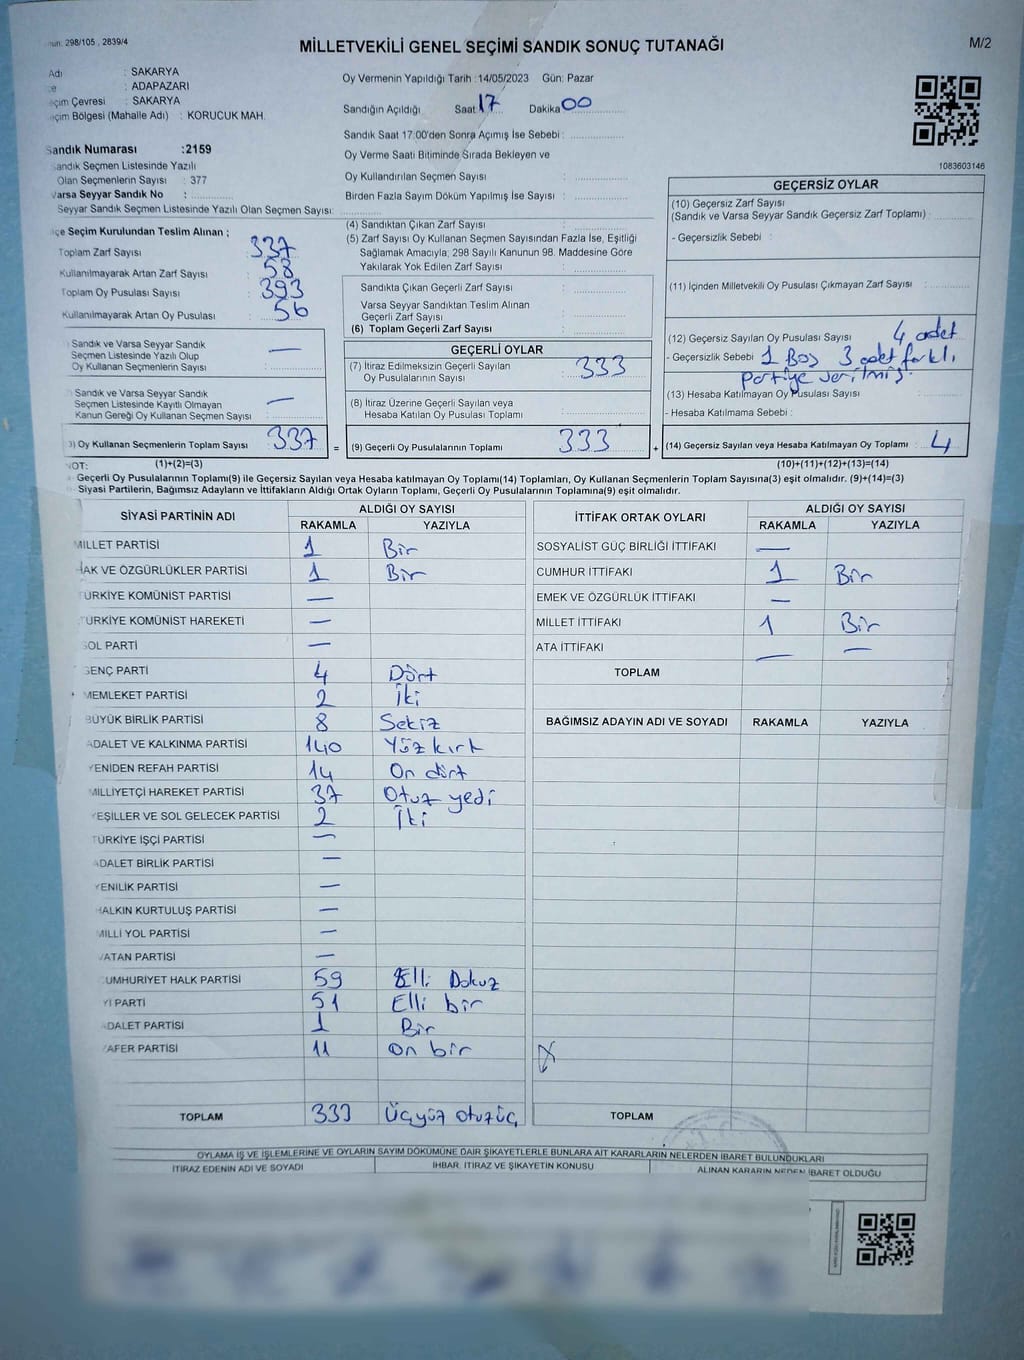 298/105 , 2839/4
MİLLETVEKİLİ GENEL SEÇİMİ SANDIK SONUÇ TUTANAĞI
M/2
Adı : SAKARYA
: ADAPAZARI
Çevresi : SAKARYA
Bölgesi (Mahalle Adı) : KORUCUK MAH.
Oy Vermenin Yapıldığı Tarih :14/05/2023 Gün: Pazar
Sandığın Açıldığı Saat 17 Dakika 00
Sandık Saat 17:00'den Sonra Açımış İse Sebebi :
Oy Verme Saati Bitiminde Sırada Bekleyen ve
Oy Kullandırılan Seçmen Sayısı :
Birden Fazla Sayım Döküm Yapılmış İse Sayısı :
1083603146
Sandık Numarası :2159
Sandık Seçmen Listesinde Yazılı
Olan Seçmenlerin Sayısı : 377
Varsa Seyyar Sandık No :
Seyyar Sandık Seçmen Listesinde Yazılı Olan Seçmen Sayısı:
Seçim Kurulundan Teslim Alınan ;
Toplam Zarf Sayısı 337
Kullanılmayarak Artan Zarf Sayısı 58
Toplam Oy Pusulası Sayısı 393
Kullanılmayarak Artan Oy Pusulası 56
Sandık ve Varsa Seyyar Sandık
Seçmen Listesinde Yazılı Olup
Oy Kullanan Seçmenlerin Sayısı : —
Sandık ve Varsa Seyyar Sandık
Seçmen Listesinde Kayıtlı Olmayan
Kanun Gereği Oy Kullanan Seçmen Sayısı : —
3) Oy Kullanan Seçmenlerin Toplam Sayısı : 337 =
(4) Sandıktan Çıkan Zarf Sayısı :
(5) Zarf Sayısı Oy Kullanan Seçmen Sayısından Fazla İse, Eşitliği
Sağlamak Amacıyla; 298 Sayılı Kanunun 98. Maddesine Göre
Yakılarak Yok Edilen Zarf Sayısı :
Sandıkta Çıkan Geçerli Zarf Sayısı :
Varsa Seyyar Sandıktan Teslim Alınan
Geçerli Zarf Sayısı :
(6) Toplam Geçerli Zarf Sayısı :
GEÇERLİ OYLAR
(7) İtiraz Edilmeksizin Geçerli Sayılan
Oy Pusulalarının Sayısı : 333
(8) İtiraz Üzerine Geçerli Sayılan veya
Hesaba Katılan Oy Pusulası Toplamı :
(9) Geçerli Oy Pusulalarının Toplamı : 333 +
GEÇERSİZ OYLAR
(10) Geçersiz Zarf Sayısı
(Sandık ve Varsa Seyyar Sandık Geçersiz Zarf Toplamı) :
- Geçersizlik Sebebi :
(11) İçinden Milletvekili Oy Pusulası Çıkmayan Zarf Sayısı :
(12) Geçersiz Sayılan Oy Pusulası Sayısı : 4 adet
- Geçersizlik Sebebi 1 Boş 3 adet farklı
partiye verilmiş.
(13) Hesaba Katılmayan Oy Pusulası Sayısı :
- Hesaba Katılmama Sebebi :
(14) Geçersiz Sayılan veya Hesaba Katılmayan Oy Toplamı : 4
NOT: (1)+(2)=(3) (10)+(11)+(12)+(13)=(14)
Geçerli Oy Pusulalarının Toplamı(9) ile Geçersiz Sayılan veya Hesaba katılmayan Oy Toplamı(14) Toplamları, Oy Kullanan Seçmenlerin Toplam Sayısına(3) eşit olmalıdır. (9)+(14)=(3)
Siyasi Partilerin, Bağımsız Adayların ve İttifakların Aldığı Ortak Oyların Toplamı, Geçerli Oy Pusulalarının Toplamına(9) eşit olmalıdır.
SİYASİ PARTİNİN ADI ALDIĞI OY SAYISI
RAKAMLA YAZIYLA
MİLLET PARTİSİ 1 Bir
HAK VE ÖZGÜRLÜKLER PARTİSİ 1 Bir
TÜRKİYE KOMÜNİST PARTİSİ —
TÜRKİYE KOMÜNİST HAREKETİ —
SOL PARTİ —
GENÇ PARTİ 4 Dört
MEMLEKET PARTİSİ 2 İki
BÜYÜK BİRLİK PARTİSİ 8 Sekiz
ADALET VE KALKINMA PARTİSİ 140 Yüz kırk
YENİDEN REFAH PARTİSİ 14 On dört
MİLLİYETÇİ HAREKET PARTİSİ 37 Otuz yedi
YEŞİLLER VE SOL GELECEK PARTİSİ 2 İki
TÜRKİYE İŞÇİ PARTİSİ —
ADALET BİRLİK PARTİSİ —
YENİLİK PARTİSİ —
HALKIN KURTULUŞ PARTİSİ —
MİLLİ YOL PARTİSİ —
VATAN PARTİSİ —
CUMHURİYET HALK PARTİSİ 59 Elli Dokuz
İYİ PARTİ 51 Elli bir
ADALET PARTİSİ 1 Bir
ZAFER PARTİSİ 11 On bir
TOPLAM 333 Üçyüz otuzüç
İTTİFAK ORTAK OYLARI ALDIĞI OY SAYISI
RAKAMLA YAZIYLA
SOSYALİST GÜÇ BİRLİĞİ İTTİFAKI —
CUMHUR İTTİFAKI 1 Bir
EMEK VE ÖZGÜRLÜK İTTİFAKI —
MİLLET İTTİFAKI 1 Bir
ATA İTTİFAKI — —
TOPLAM
BAĞIMSIZ ADAYIN ADI VE SOYADI RAKAMLA YAZIYLA
TOPLAM
OYLAMA İŞ VE İŞLEMLERİNE VE OYLARIN SAYIM DÖKÜMÜNE DAİR ŞİKAYETLERLE BUNLARA AİT KARARLARIN NELERDEN İBARET BULUNDUKLARI
İTİRAZ EDENİN ADI VE SOYADI İHBAR, İTİRAZ VE ŞİKAYETİN KONUSU ALINAN KARARIN NEDEN İBARET OLDUĞU